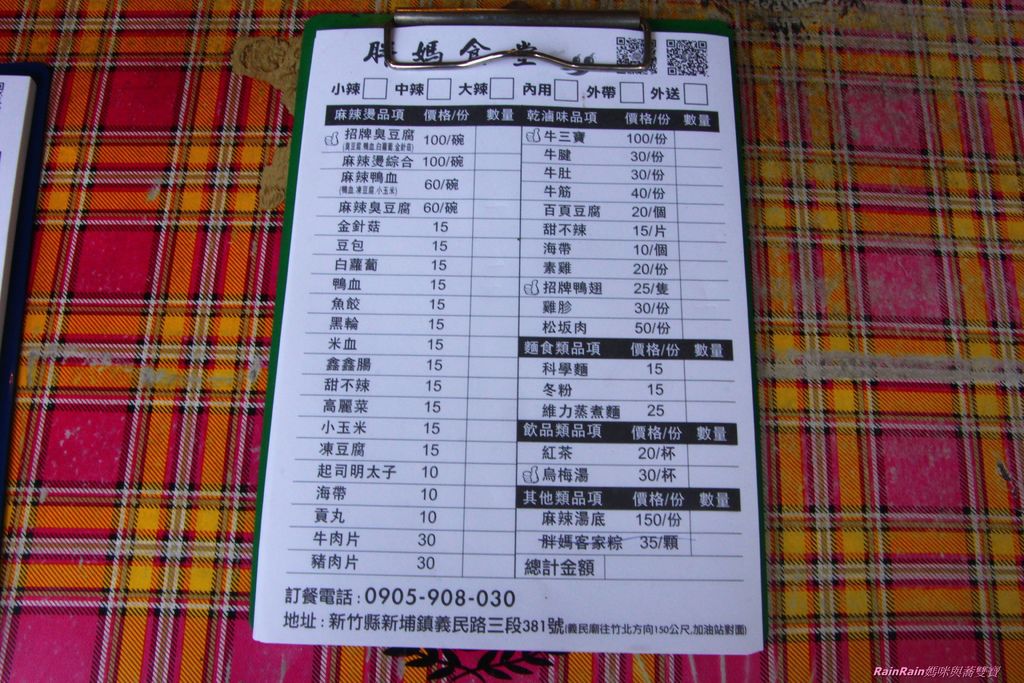 胖媽食堂
小辣 中辣 大辣 內用 外帶 外送
麻辣燙品項 價格/份 數量
招牌臭豆腐 100/碗
(臭豆腐.鴨血.白蘿蔔.金針菇)
麻辣燙綜合 100/碗
麻辣鴨血 60/碗
(鴨血.凍豆腐.小玉米)
麻辣臭豆腐 60/碗
金針菇 15
豆包 15
白蘿蔔 15
鴨血 15
魚餃 15
黑輪 15
米血 15
鑫鑫腸 15
甜不辣 15
高麗菜 15
小玉米 15
凍豆腐 15
起司明太子 10
海帶 10
貢丸 10
牛肉片 30
豬肉片 30
乾滷味品項 價格/份 數量
牛三寶 100/份
牛腱 30/份
牛肚 30/份
牛筋 40/份
百頁豆腐 20/個
甜不辣 15/片
海帶 10/個
素雞 20/份
招牌鴨翅 25/隻
雞胗 30/份
松坂肉 50/份
麵食類品項 價格/份 數量
科學麵 15
冬粉 15
維力蒸煮麵 25
飲品類品項 價格/份 數量
紅茶 20/杯
烏梅湯 30/杯
其他類品項 價格/份 數量
麻辣湯底 150/份
胖媽客家粽 35/顆
總計金額
訂餐電話:0905-908-030
地址:新竹縣新埔鎮義民路三段381號(義民廟往竹北方向150公尺,加油站對面)
RainRain媽咪與蕎雙寶